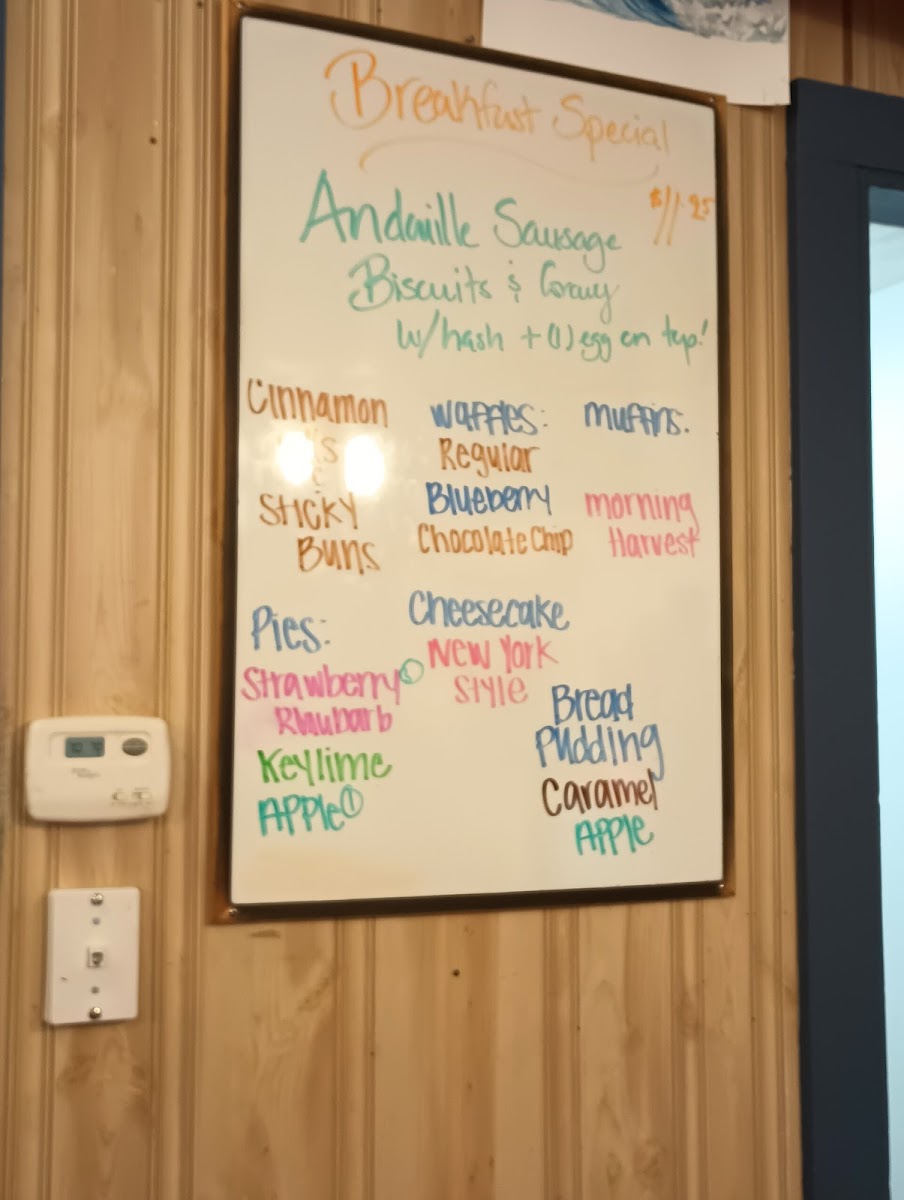 Breakfast Special
$11.25
Andouille Sausage
Biscuits & Gravy
w/hash + (1) egg on top!
Cinnamon
&
Sticky
Buns
Waffles:
Regular
Blueberry
Chocolate Chip
Muffins.
Morning
Harvest
Pies:
Strawberry
Rhubarb
Keylime
Apple ①
Cheesecake
New York
Style
Bread
Pudding
Caramel
Apple